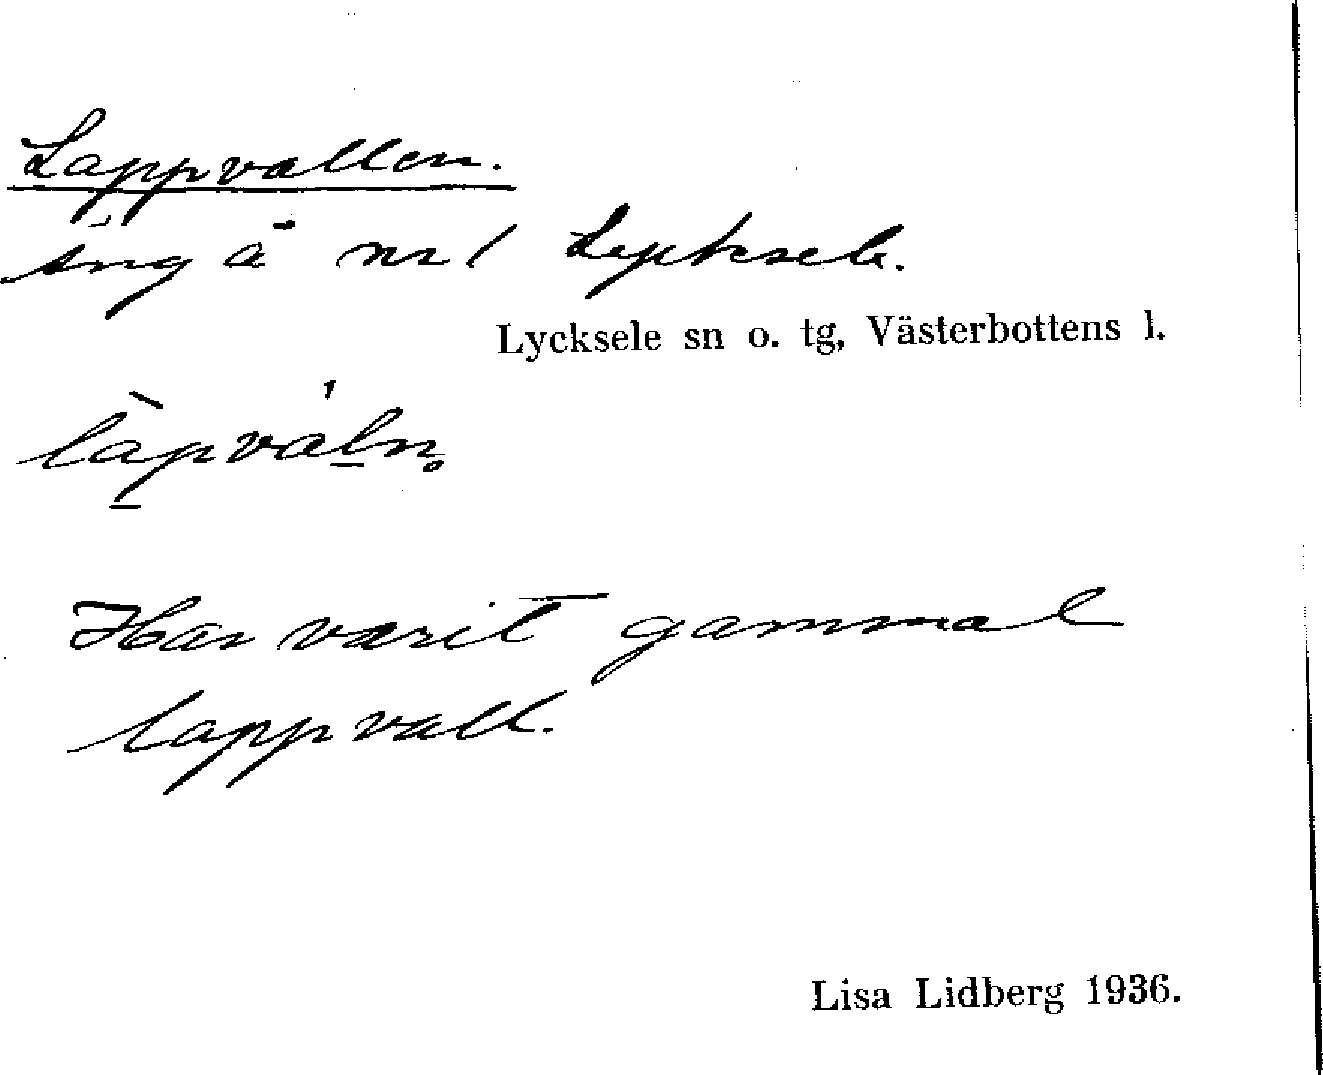 Lappvallen.
äng å nr 1 Lycksele.
Lycksele sn o. tg, Västerbottens l.
làpváln̥
Har varit gammal
lappvall.
Lisa Lidberg 1936.